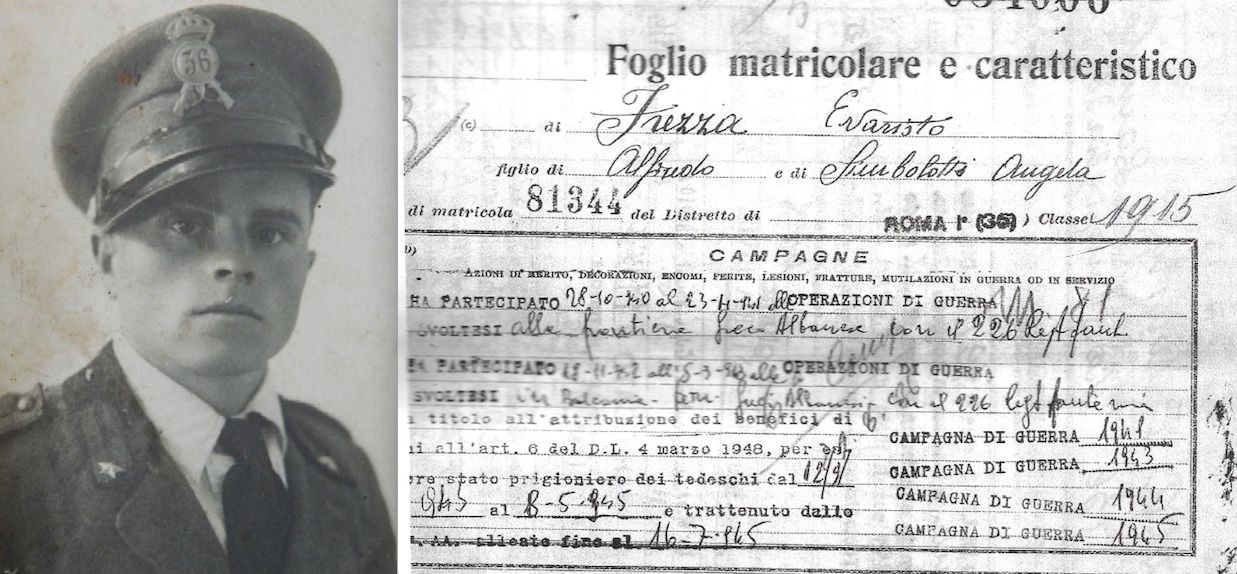 36
Foglio matricolare e caratteristico
(c) di Frezza Evaristo
figlio di Alfredo e di Simbolotti Angela
di matricola 81344 del Distretto di ROMA Iª (35) ) Classe 1915
CAMPAGNE
AZIONI DI MERITO, DECORAZIONI, ENCOMI, FERITE, LESIONI, FRATTURE, MUTILAZIONI IN GUERRA OD IN SERVIZIO
HA PARTECIPATO 28-10-940 al 23-4-941 alle OPERAZIONI DI GUERRA
SVOLTESI alla frontiera Greco Albanese con il 226 Regt fant
HA PARTECIPATO OPERAZIONI DI GUERRA
SVOLTESI in Balcania con il 226
titolo all'attribuzione dei benefici di
all'art. 6 del D.L. 4 marzo 1948, per CAMPAGNA DI GUERRA 1941
stato prigioniero dei tedeschi dal 12/9/ CAMPAGNA DI GUERRA 1943
al 8-5-945 e trattenuto dalle CAMPAGNA DI GUERRA 1944
AA. alleate fino al 16-7-945 CAMPAGNA DI GUERRA 1945